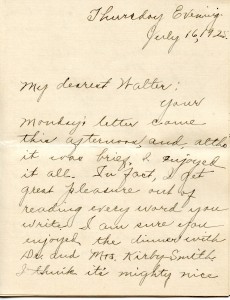 Thursday Evening.
July 16, 1925.
My dearest Walter:
Your
Monday's letter came
this afternoon and, altho
it was brief, I enjoyed
it all. In fact, I get
great pleasure out of
reading every word you
write. I am sure you
enjoyed the dinner with
Dr. and Mrs. Kirby-Smith.
I think it's mighty nice